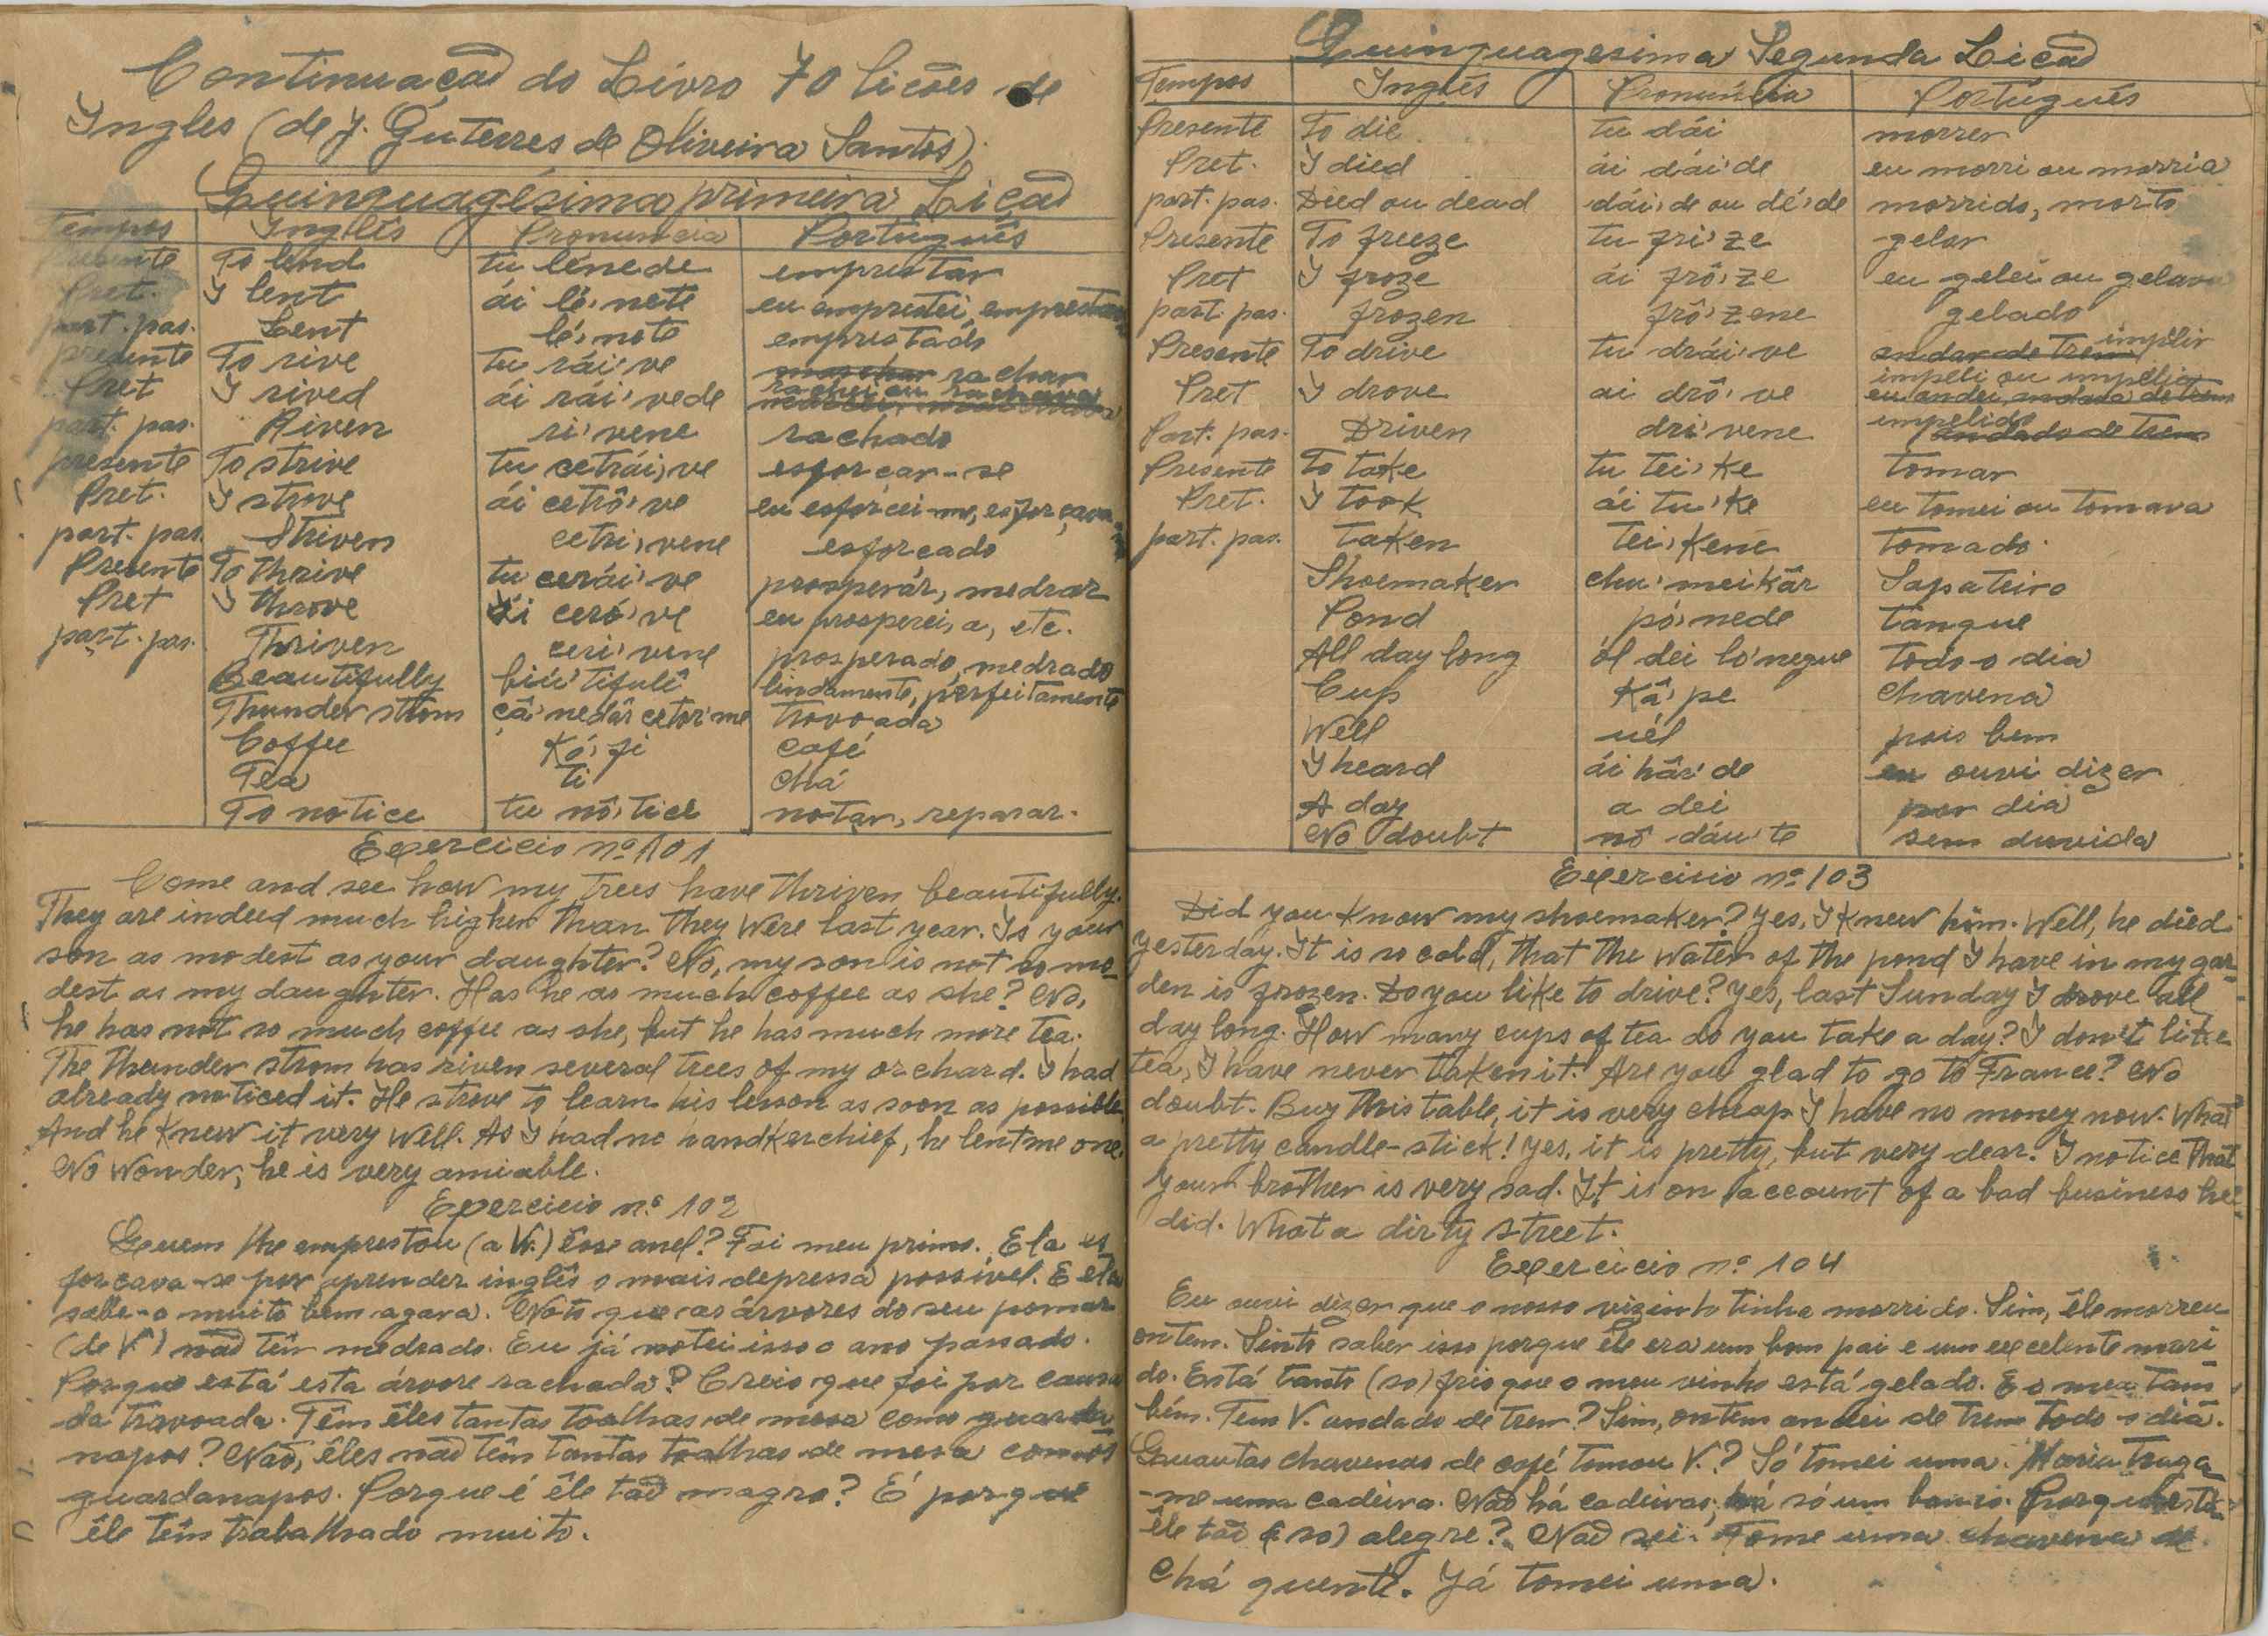 Continuação do Livro 70 lições de
Ingles (de J. Guterres de Oliveira Santos).
Quinquagésima primeira Lição
Tempos Inglês Pronuncia Português
Presente To lend tu lénede emprestar
Pret. I lent ái lé'nete eu emprestei, emprestava
part. pas. Lent lé'nete emprestado
presente To rive tu rái've marchar rachar
Pret I rived ái rái'vede rachei ou rachava
part. pas. Riven ri'vene rachado
presente To strive tu cetrái've esforcar-se
Pret. I strove ái cetrô've eu esforcei-me, esforçava
part. pas. Striven cetri'vene esforçado
Presente To thrive tu cerái've prosperár, medrar
Pret I throve ái cerô've eu prosperei, a, etc.
part. pas. Thriven ceri'vene prosperado, medrado
Beautifully biú'tifulì lindamente, perfeitamente
Thunder strom çâ'nedâr cetor'me trovoada
Coffee Kó'fi café
Tea ti chá
To notice tu nô'tice notar, reparar.
Exercicio nº 101
Come and see how my trees have thriven beautifully.
They are indeed much higher than they were last year. Is your
son as modest as your daughter? No, my son is not so mo-
dest as my daughter. Has he as much coffee as she? No,
he has not so much coffee as she, but he has much more tea.
The thunder strom has riven several trees of my orchard. I had
already noticed it. He strove to learn his lesson as soon as possible.
And he knew it very well. As I had no handkerchief, he lent me one.
No wonder, he is very amiable.
Exercicio nº 102
Quem lhe emprestou (a V.) êsse anel? Foi meu primo. Ela es
forcava-se por aprender inglês o mais depressa possível. E ela
sabe-o muito bem agora. Noto que as árvores do seu pomar
(de V.) não têm medrado. Eu já notei isso o ano passado.
Porque está esta árvore rachada? Creio que foi por causa
da trovoada. Têm êles tantas toalhas de mesa como guarda
napos? Não, êles não têm tantas toalhas de mesa como
guardanapos. Porque é êle tão magro? É porque
êle têm trabalhado muito.
Quinquagesima Segunda Lição
Tempos Inglês Pronúncia Português
Presente To die tu dái morrer
Pret. I died ái dái'de eu morri ou morria
part. pas. Died ou dead dái'de ou dé'de morrido, morto
Presente To freeze tu fri'ze gelar
Pret I froze ái frô'ze eu gelei ou gelava
part. pas. frozen frô'zene gelado
Presente To drive tu drái've andar de trem implir
Pret I drove ai drô've impeli ou impelia eu andei, andava de trem
Part. pas. Driven dri'vene impelido andado de trem
Presente To take tu tei'ke tomar
Pret. I took ái tu'ke eu tomei ou tomava
part. pas. Taken Tei'kene Tomado
Shoemaker chu'meikâr Sapateiro
Pond pó'nede tanque
All day long ól dei ló'negue Todo o dia
Cup Kâ'pe chavena
Well uél pois bem
I heard ái hâr'de eu ouvi dizer
A day a dei por dia
No doubt nô dáu'te sem duvida
Exercicio nº 103
Did you know my shoemaker? Yes, I knew him. Well, he died
yesterday. It is so cold, that the water of the pond I have in my gar-
den is frozen. Do you like to drive? Yes, last Sunday I drove all
day long. How many cups of tea do you take a day? I don't like
tea, I have never taken it. Are you glad to go to France? No
doubt. Buy this table, it is very cheap I have no money now. What
a pretty candle-stick! Yes, it is pretty, but very dear. I notice that
your brother is very sad. It is on account of a bad business he
did. What a dirty street.
Exercicio nº 104
Eu ouvi dizer que o nosso vizinho tinha morrido. Sim, êle morreu
ontem. Sinto saber isso porque êle era um bom pai e um excelente mari
do. Está tanto (so) frio que o meu vinho está gelado. E o meu tam
bém. Tem V. andado de trem? Sim, ontem andei de trem todo o dia.
Quantas chavenas de café tomou V.? Só tomei uma. Maria traga
-me uma cadeira. Não há cadeiras, há só um banco. Porque está
êle tão (so) alegre? Não sei. Tome uma chavena de
chá quente. Já tomei uma.